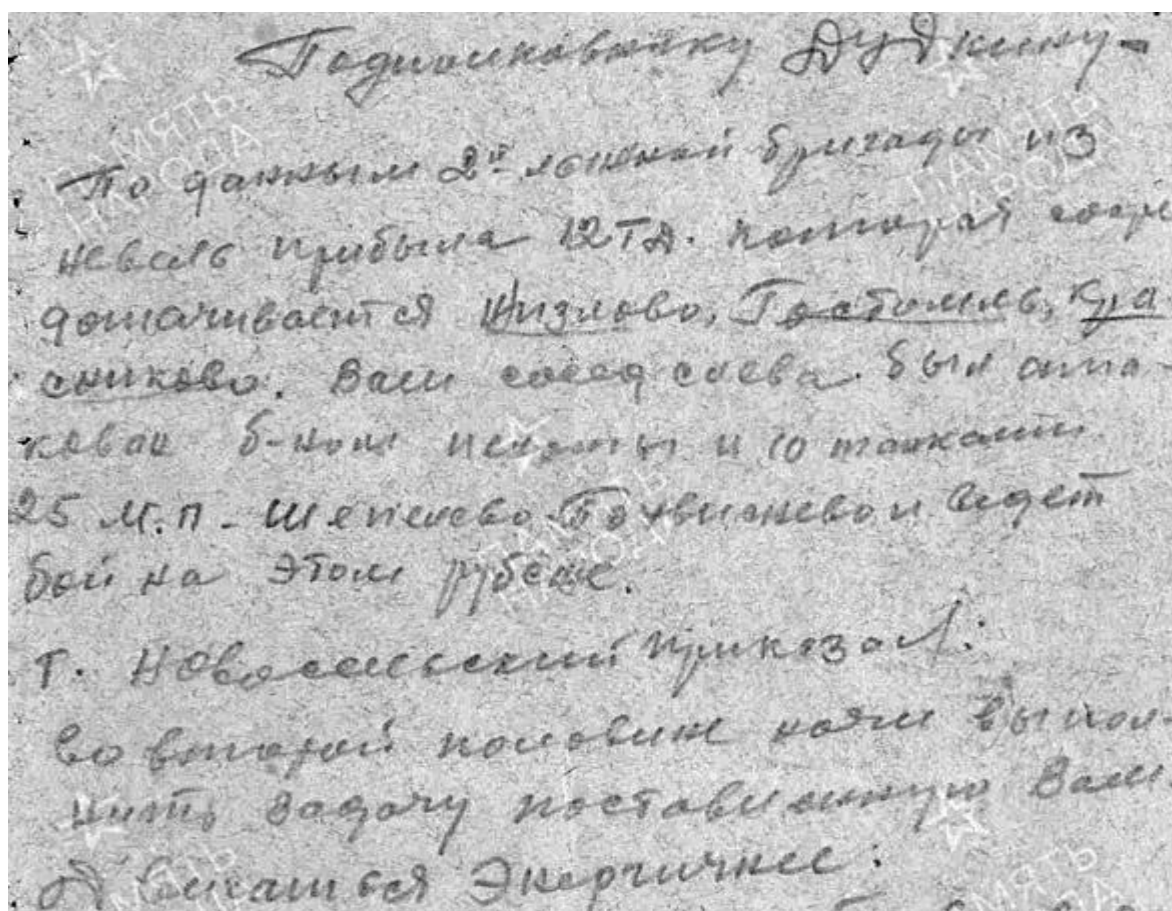 Подполковнику Дудкину-
По данным 2й лыжной бригады из
Невель прибыла 12 ТД. которая соср
доточивается Жизлово, Гостомль, Кра
сниково. Ваш сосед слева был ата-
кован б-ном пехоты и 10 танками
25 м.п - Шепелево и ведет
бой на этом рубеже.
Т. Новосельский приказал:
во второй половине ночи выпол
нить задачу поставленную Вам
Двигаться Энергичнее:
ПАМЯТЬ
НАРОДА
ПАМЯТЬ
НАРОДА
ПАМЯТЬ
НАРОДА